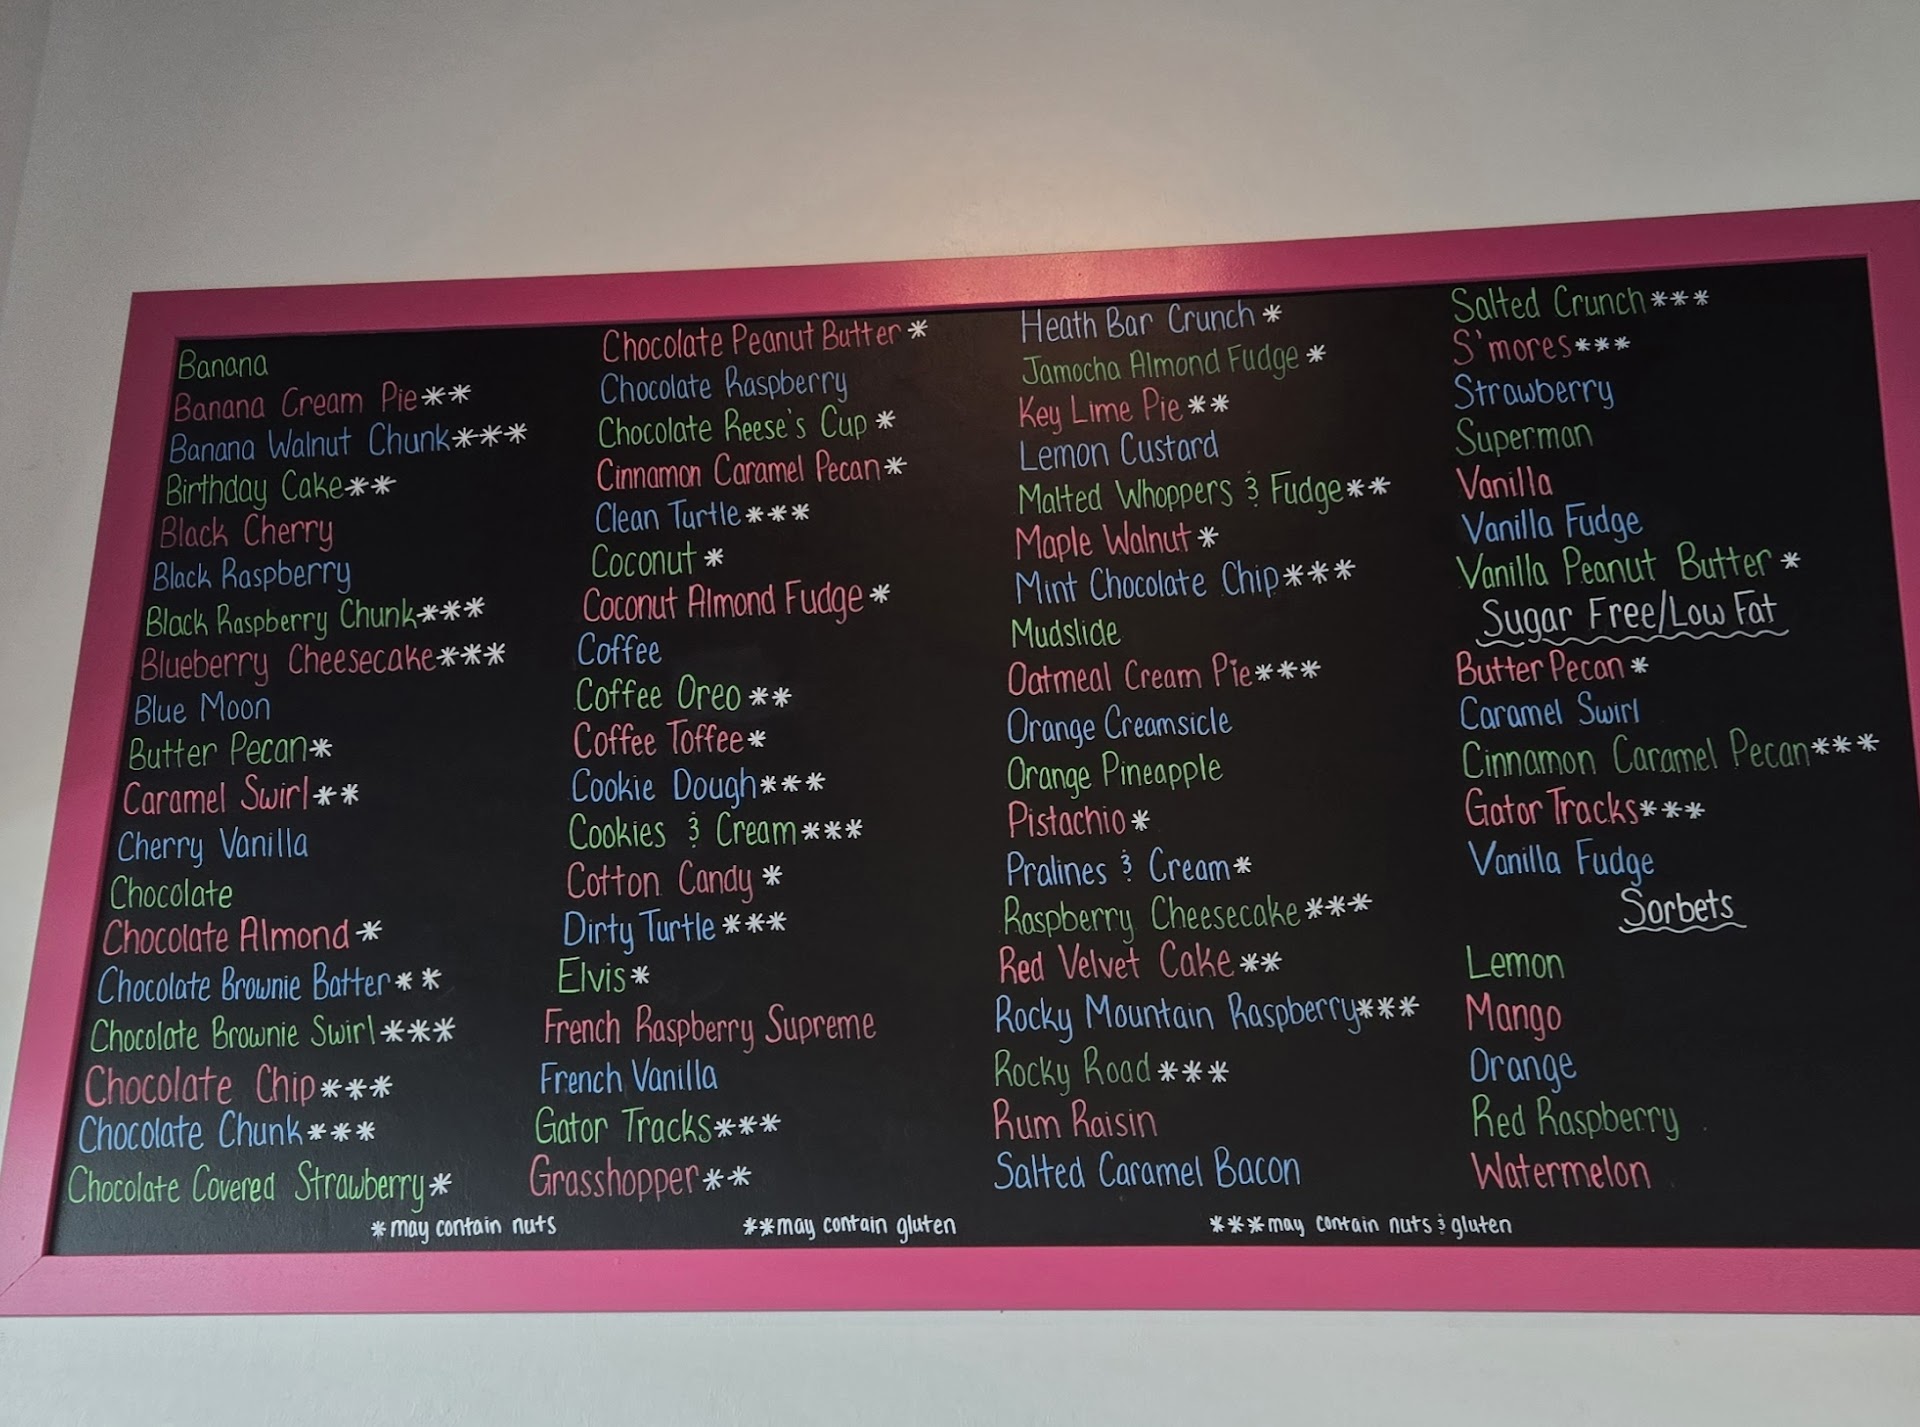 Banana
Banana Cream Pie**
Banana Walnut Chunk***
Birthday Cake**
Black Cherry
Black Raspberry
Black Raspberry Chunk***
Blueberry Cheesecake***
Blue Moon
Butter Pecan*
Caramel Swirl**
Cherry Vanilla
Chocolate
Chocolate Almond*
Chocolate Brownie Batter**
Chocolate Brownie Swirl***
Chocolate Chip***
Chocolate Chunk***
Chocolate Covered Strawberry*
Chocolate Peanut Butter*
Chocolate Raspberry
Chocolate Reese's Cup*
Cinnamon Caramel Pecan*
Clean Turtle***
Coconut*
Coconut Almond Fudge*
Coffee
Coffee Oreo**
Coffee Toffee*
Cookie Dough***
Cookies & Cream***
Cotton Candy*
Dirty Turtle***
Elvis*
French Raspberry Supreme
French Vanilla
Gator Tracks***
Grasshopper**
Heath Bar Crunch*
Jamocha Almond Fudge*
Key Lime Pie**
Lemon Custard
Malted Whoppers & Fudge**
Maple Walnut*
Mint Chocolate Chip***
Mudslide
Oatmeal Cream Pie***
Orange Creamsicle
Orange Pineapple
Pistachio*
Pralines & Cream*
Raspberry Cheesecake***
Red Velvet Cake**
Rocky Mountain Raspberry***
Rocky Road***
Rum Raisin
Salted Caramel Bacon
Salted Crunch***
S'mores***
Strawberry
Superman
Vanilla
Vanilla Fudge
Vanilla Peanut Butter*
Sugar Free/Low Fat
Butter Pecan*
Caramel Swirl
Cinnamon Caramel Pecan***
Gator Tracks***
Vanilla Fudge
Sorbets
Lemon
Mango
Orange
Red Raspberry
Watermelon
*may contain nuts
**may contain gluten
***may contain nuts & gluten